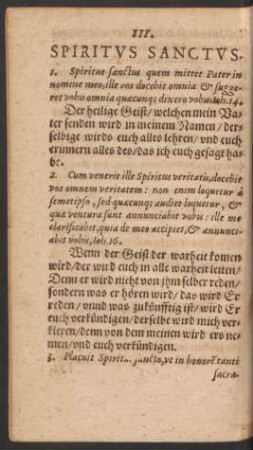 III.
SPIRITVS SANCTVS.
1. Spiritus sanctus quem mittet Pater in
nomine meo, ille vos docebit omnia & sugge-
ret vobis omnia quæcunq; dixero vobis. Ioh. 14.
Der heilige Geist/ welchen mein Va-
ter senden wird in meinem Namen/ ders-
selbige wirds euch alles lehren/ vnd euch
erinnern alles des/ das ich euch gesagt ha-
be.
2. Cum venerit ille Spiritus veritatis, docebit
vos omnem veritatem: non enim loquetur à
semetipso, sed quæcunq; audiet loquetur, &
quæ ventura sunt annunciabit vobis: ille me
clarificabit, quia de meo accipiet, & annunci-
abit vobis, Ioh. 16.
Wenn der Geist der warheit komen
wird/ der wird euch in alle warheit leiten/
Denn er wird nicht von jhm selber reden/
sondern was er hören wird/ das wird Er
reden/ vnnd was zukünfftig ist/ wird Er
euch verkündigen/ derselbe wird mich ver-
kleren/ denn von dem meinen wird ers ne-
men/ vnd euch verkündigen.
3. Placuit Spiritu sancto, vt in honorē tanti
sacra-